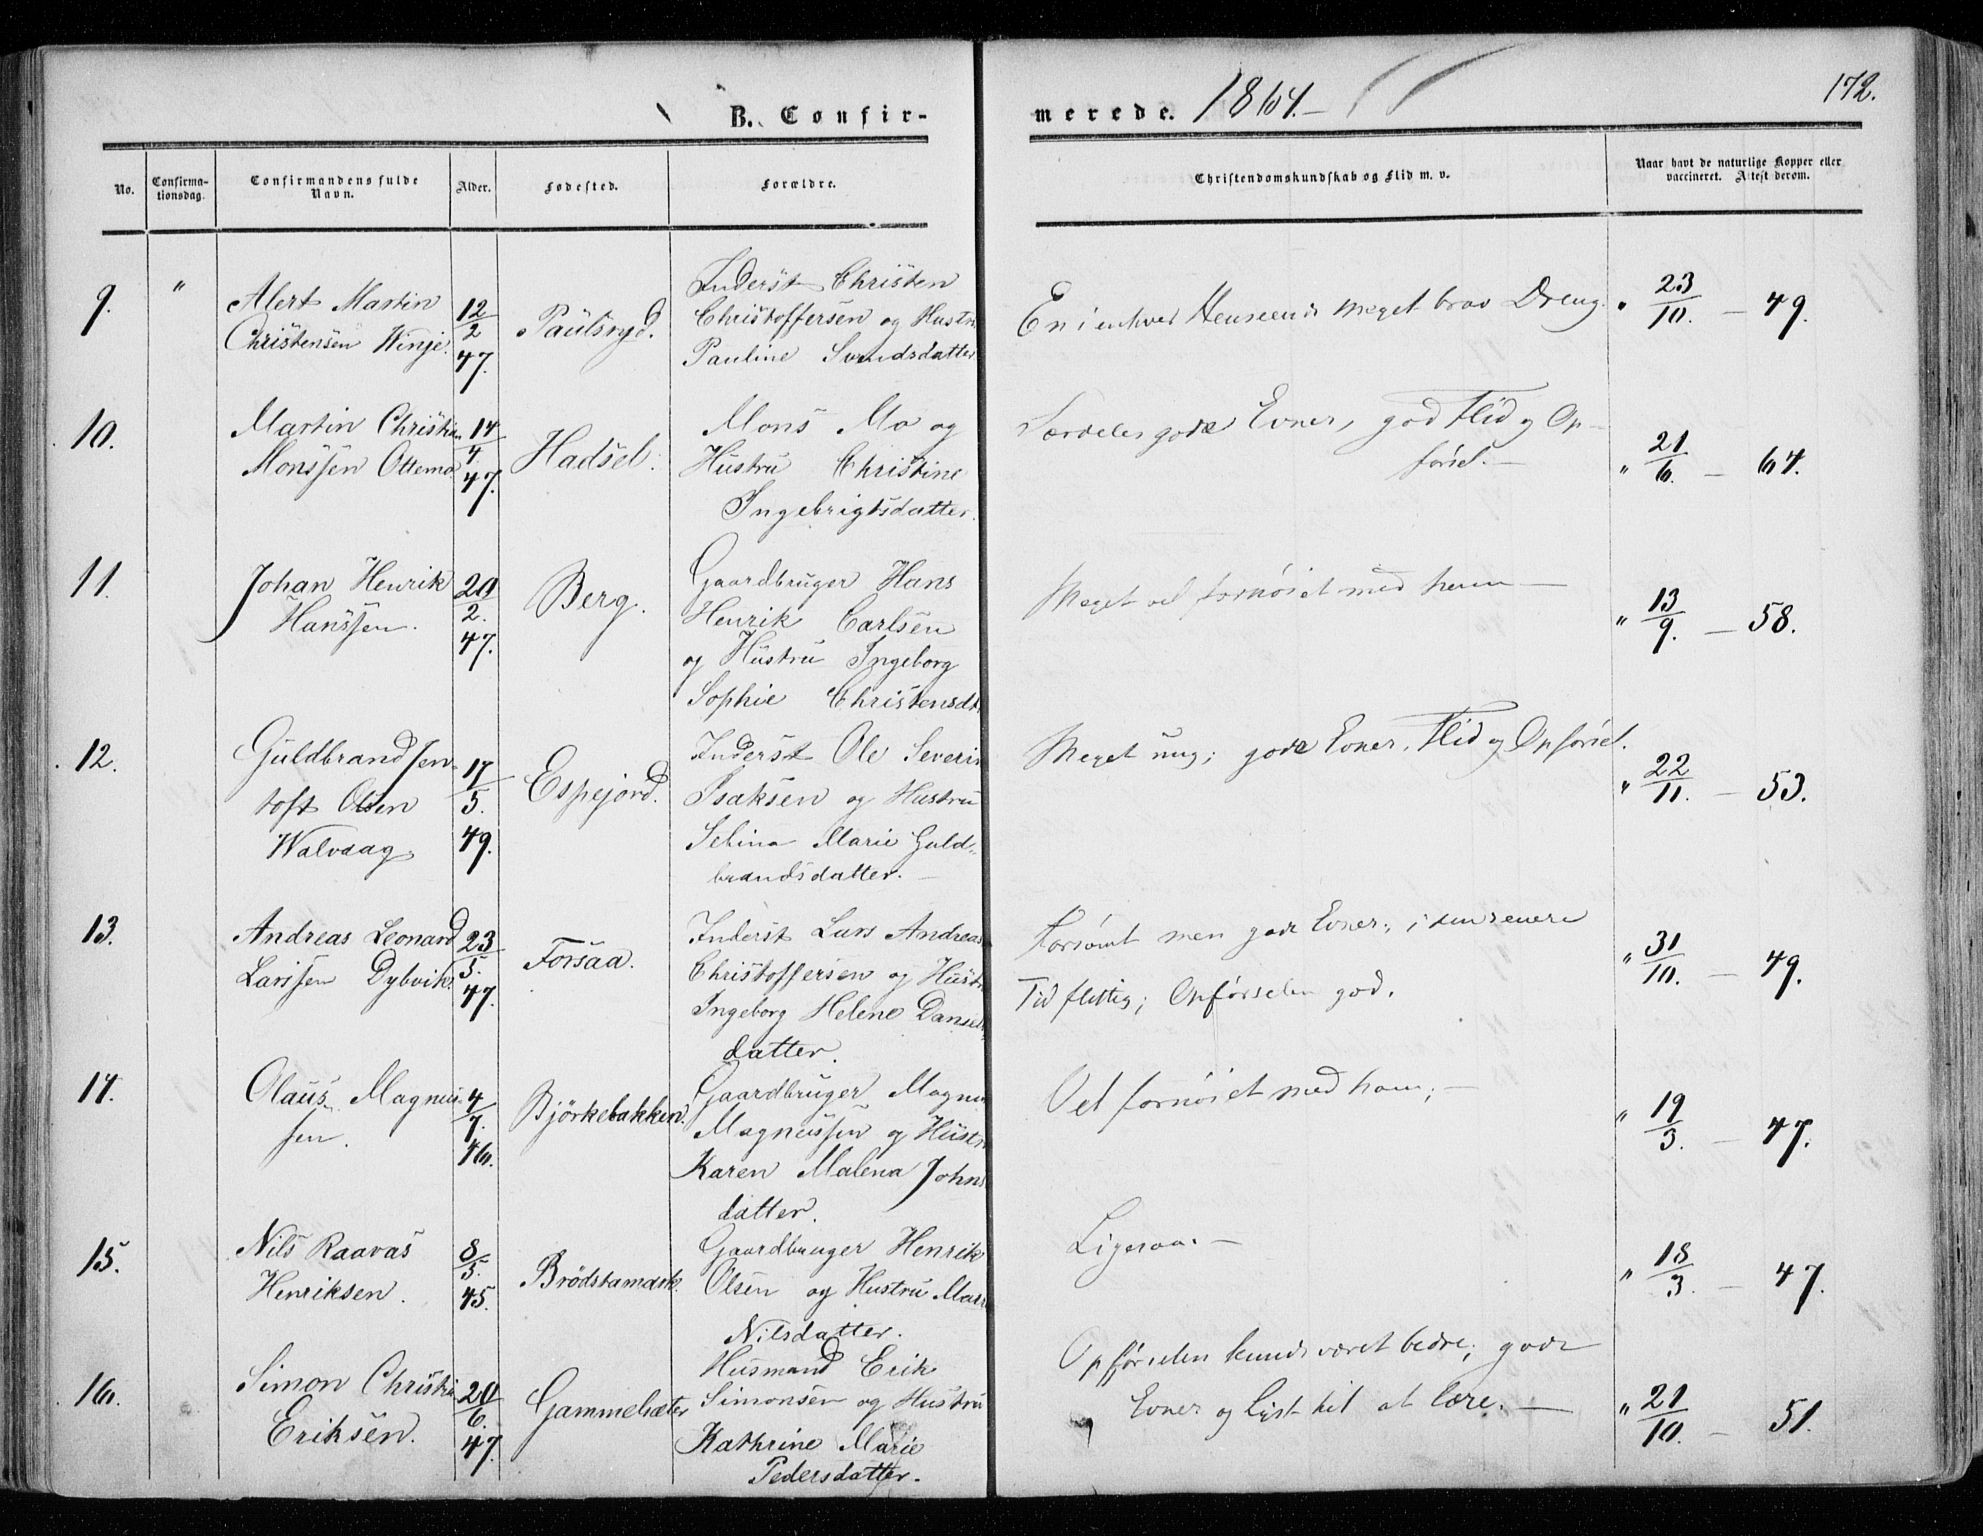 B. Confir-
merede. 1864.-
172.
No.
Confirma-
tionsdag.
Confirmandens fulde
Navn.
Alder.
Fødested.
Forældre.
Christendomskundskab og Flid m. v.
Naar havt de naturlige Kopper eller
vaccineret. Attest derom.
9.
"
Alert Martin
Christensen Winje.
12/2 47.
Inderst Christen
Christoffersen og Hustru
Pauline Svendsdatter
En i enhver Henseende meget brav Dreng.
" 23/10. - 49.
10.
Martin Christian
Monssen Ottemo
14/4. 47.
Hadsel.
Mons Mo og
Hustru Christine
Ingebrigtsdatter.
Særdeles gode Evner, god Flid og Op-
førsel. -
" 21/6. - 64.
11.
Johan Henrik
Hanssen.
20/2. 47.
Berg.
Gaardbruger Hans
Henrik Carlsen
og Hustru Ingeborg
Sophie Christensdt.
Meget vel fornøiet med ham -
" 13/9. - 58.
12.
Guldbrand Jen-
toft Olsen
Walvaag.
17/5. 49.
Espejord.
Inderst Ole Severin
Isaksen og Hustru
Selina Marie Guld-
brandsdatter. -
Meget ung; gode Evner, Flid og Opførsel.
" 22/11. - 53.
13.
Andreas Leonard
Larssen Dybvik.
23/5. 47.
Forsaa.
Inderst Lars Andreas
Christoffersen og Hustru
Ingeborg Helene Daniels
datter.
Forsømt men gode Evner; i den senere
Tid flittig; Opførselen god.
" 31/10. - 49.
14.
Olaus Magnus
sen.
4/7. 46.
Bjørkebakken.
Gaardbruger Magnus
Magnussen og Hustru
Karen Malena Johns
datter.
Vel fornøiet med ham; -
" 19/3. - 47.
15.
Nils Raavas
Henriksen.
8/5. 45.
Brødstamark.
Gaardbruger Henrik
Olsen og Hustru Marit
Nilsdatter.
Ligesaa. -
" 18/3. - 47.
16.
Simon Christian
Eriksen.
20/6. 47.
Gammelsæter
Husmand Erik
Simonsen og Hustru
Kathrine Marie
Pedersdatter.
Opførselen kunde været bedre; gode
Evner og Lyst til at lære. -
" 21/10. - 51.